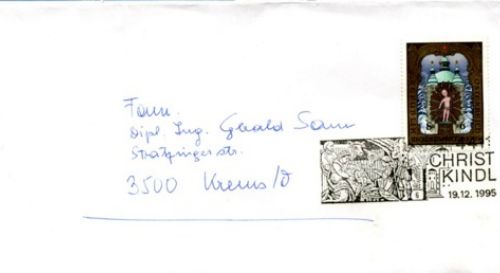 Fam.
Dipl. Ing. Gerald Sam
Stratzingerstr.
3500 Krems/D
CHRIST
KINDL
19.12.1995